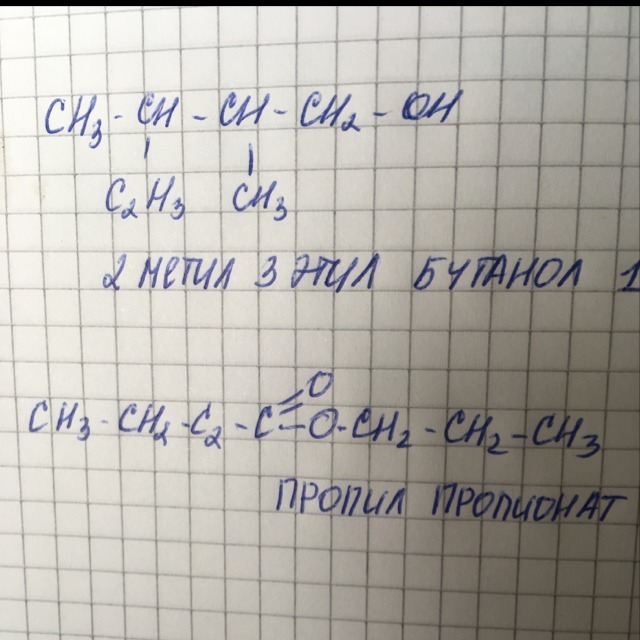 CH₃ - CH - CH - CH₂ - OH
C₂H₃ CH₃
2 МЕТИЛ 3 ЭТИЛ БУТАНОЛ 1
O
CH₃ - CH₂ - C₂ - C - O - CH₂ - CH₂ - CH₃
ПРОПИЛ ПРОПИОНАТ